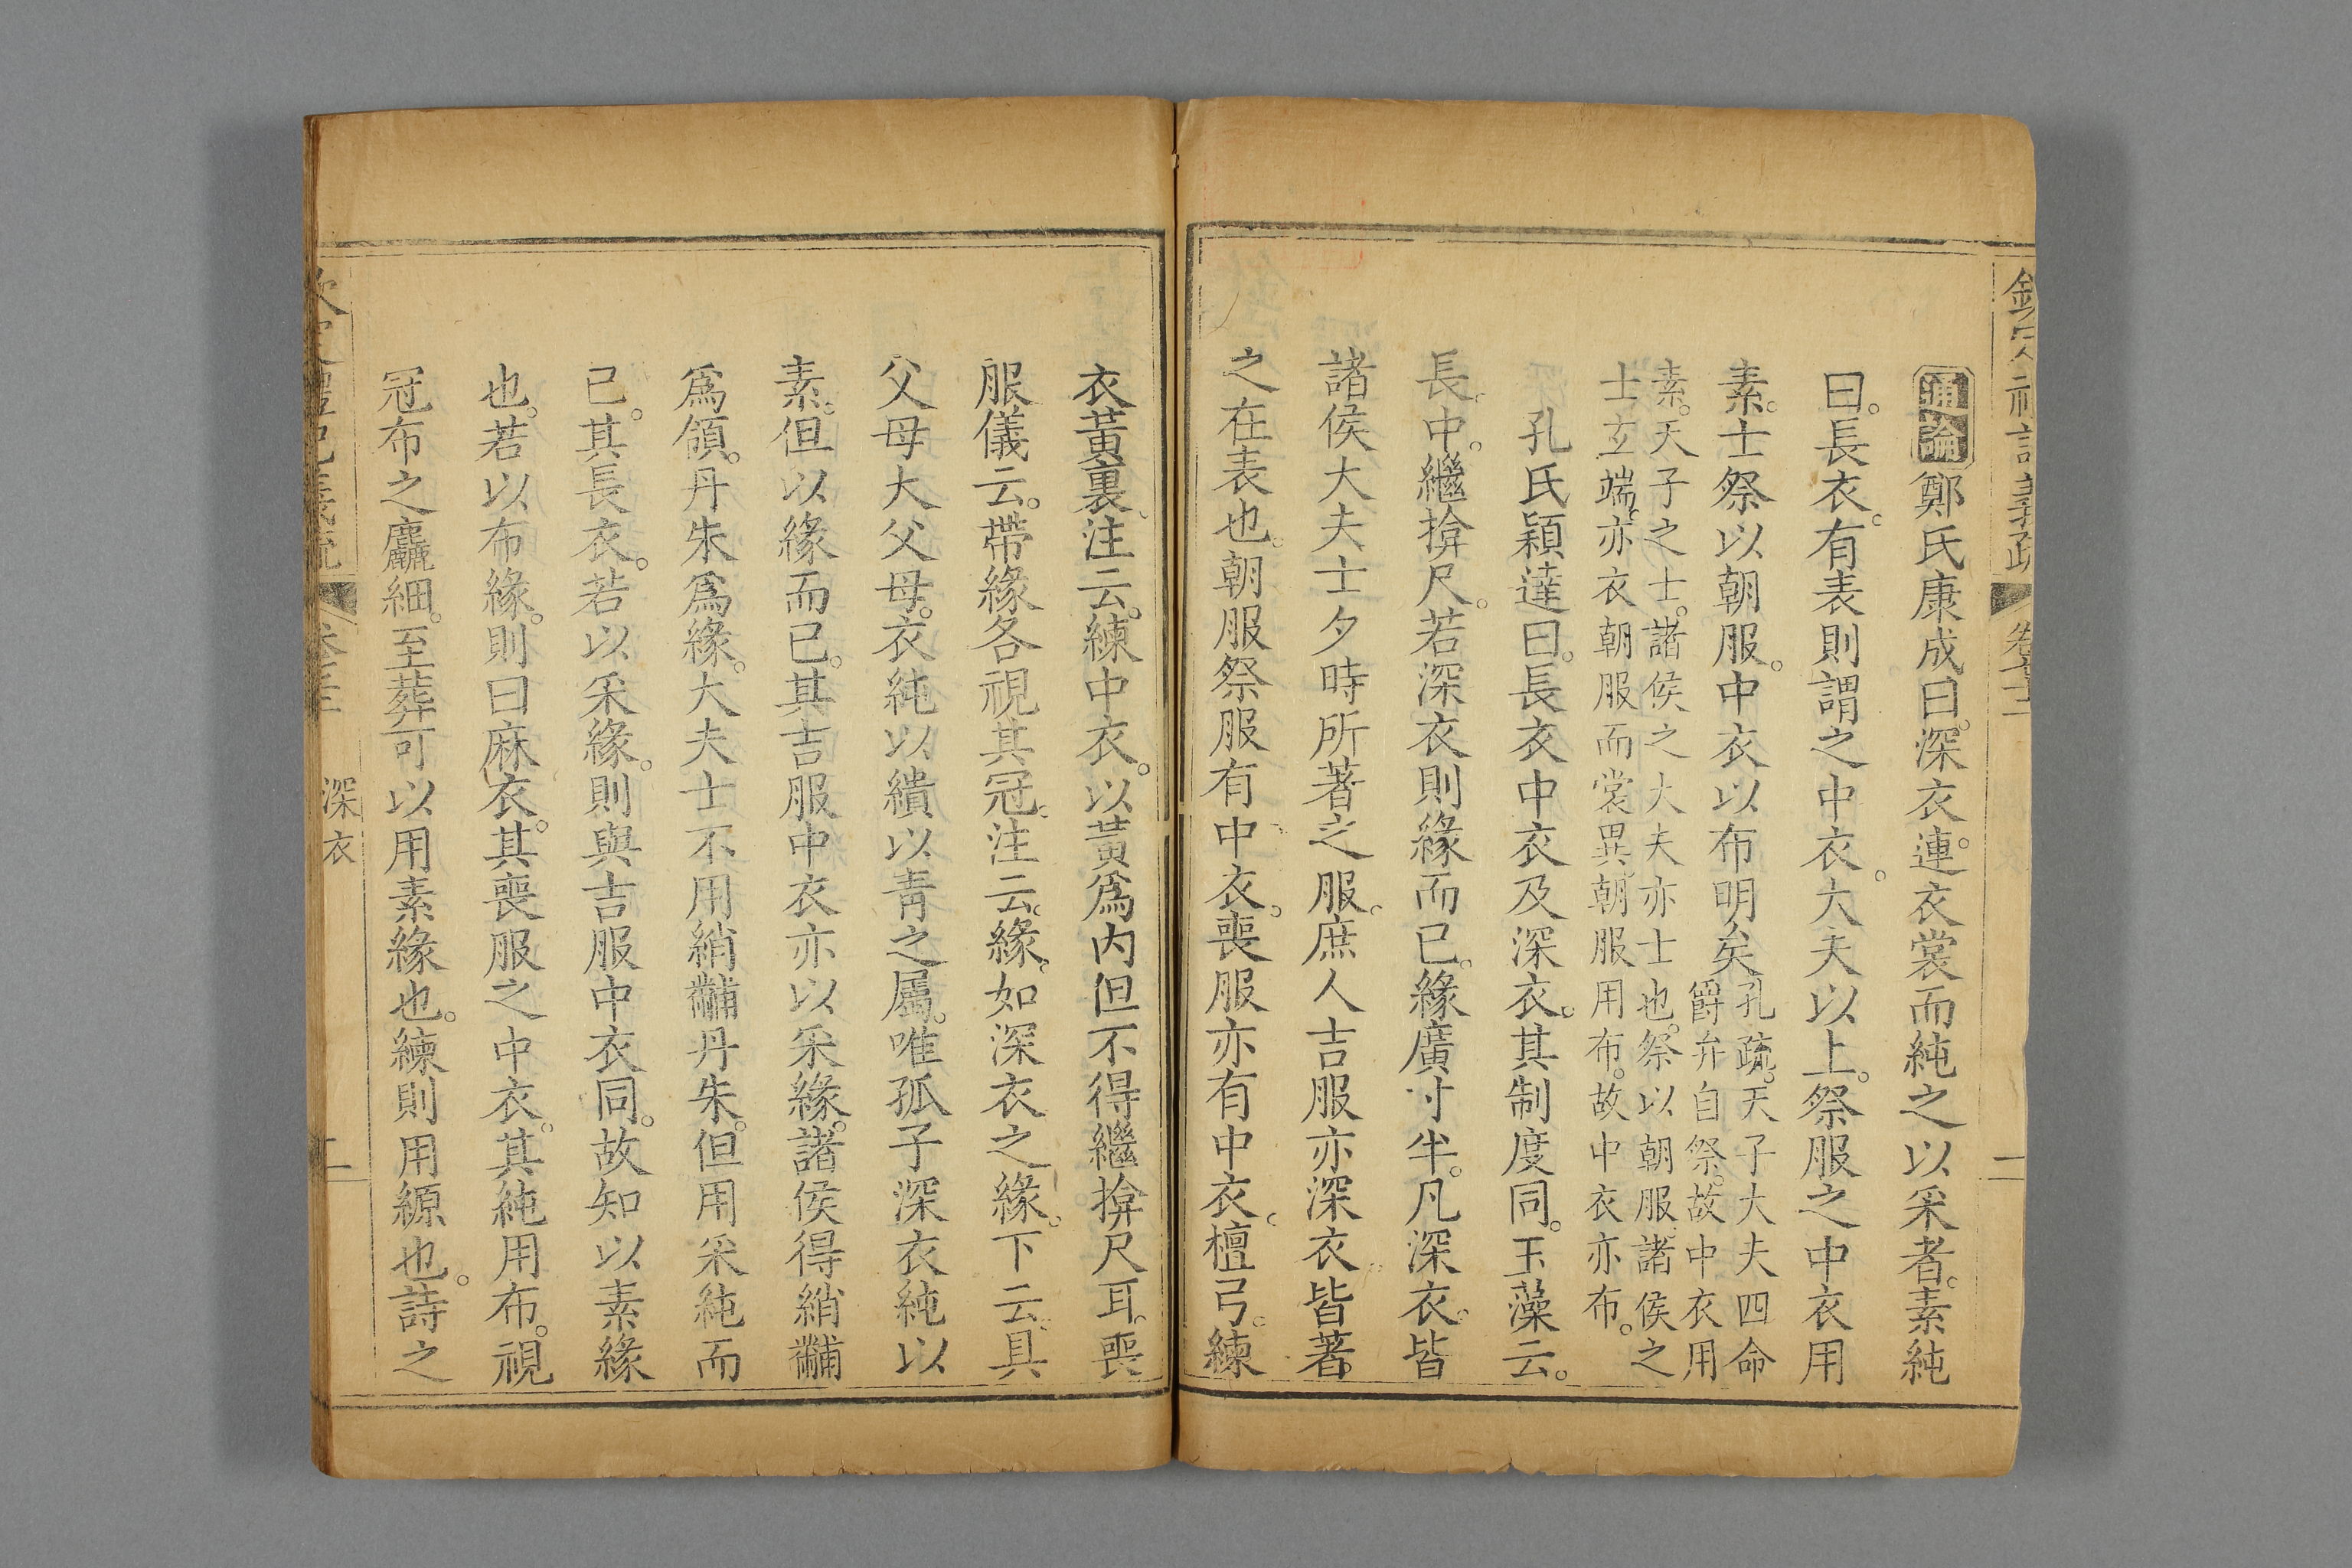 欽定禮記義疏 卷七十二 二
通論鄭氏康成曰。深衣。連衣裳而純之以采者。素純
曰。長衣。有表則謂之中衣。大夫以上。祭服之中衣用
素。士祭以朝服。中衣以布明矣孔疏。天子大夫四命
爵弁自祭。故中衣用
素。天子之士。諸侯之大夫亦士也。祭以朝服。諸侯之
士玄端。亦衣朝服而裳異。朝服用布。故中衣亦布。
孔氏穎達曰。長衣中衣及深衣。其制度同。玉藻云。
長。中。繼揜尺。若深衣則緣而已。緣廣寸半。凡深衣。皆
諸侯大夫士夕時所著之服。庶人吉服亦深衣。皆著
之在表也。朝服祭服有中衣。喪服亦有中衣。檀弓。練
衣黃裏。注云。練中衣。以黃爲內但不得繼揜尺耳。喪
服儀云。帶緣各視其冠。注云。緣。如深衣之緣。下云。具
父母大父母。衣純以繢以青之屬。唯孤子深衣純以
素。但以緣而已。其吉服中衣亦以采緣。諸侯得綃黼
爲領。丹朱爲緣。大夫士不用綃黼丹朱。但用采純而
已。其長衣。若以采緣。則與吉服中衣同。故知以素緣
也。若以布緣。則曰麻衣。其喪服之中衣。其純用布。視
冠布之麤細。至葬可以用素緣也。練則用縓也。詩之
欽定禮記義疏 深衣 二